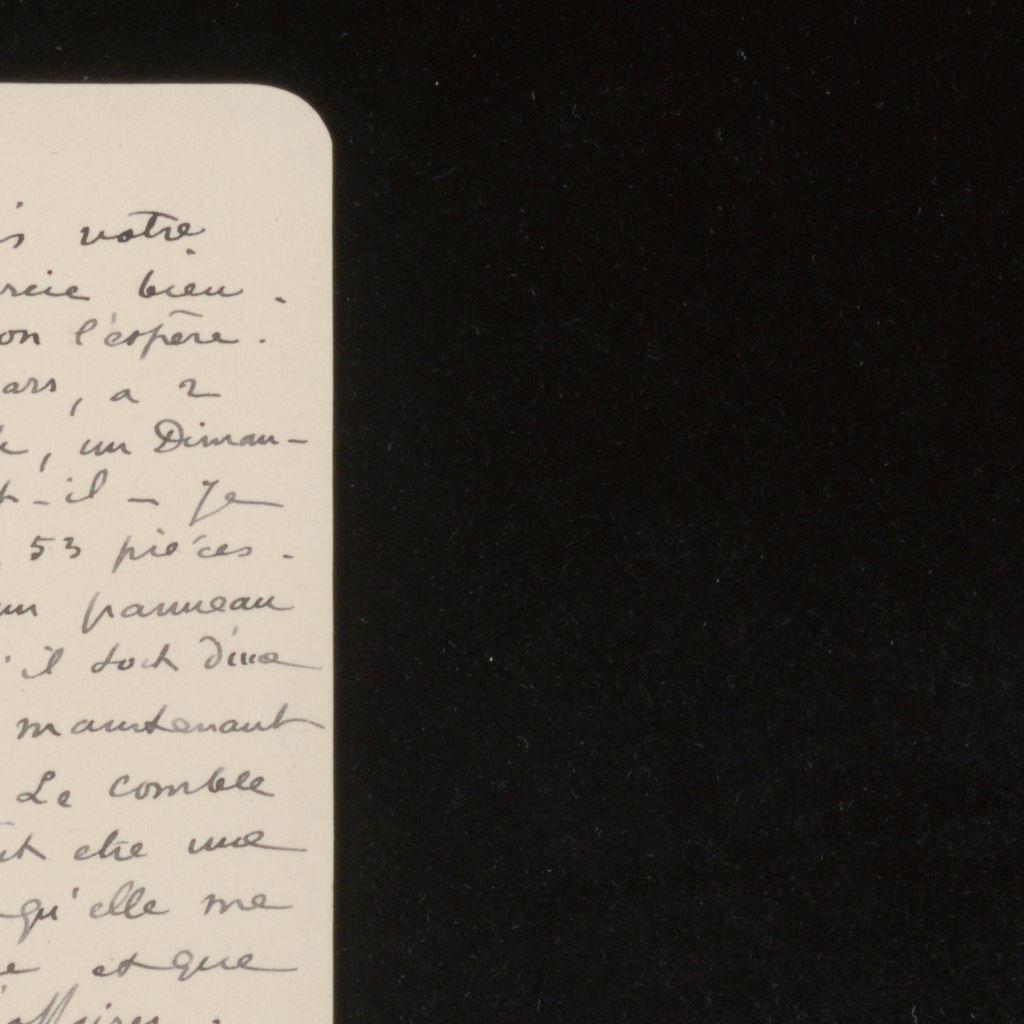 is votre
rcie bien.
on l'espère.
ars, a 2
, un Diman-
t-il - Je
53 pièces.
un panneau
'il doit dine
maintenant
Le comble
it etre une
qu'elle me
e et que
affaires.